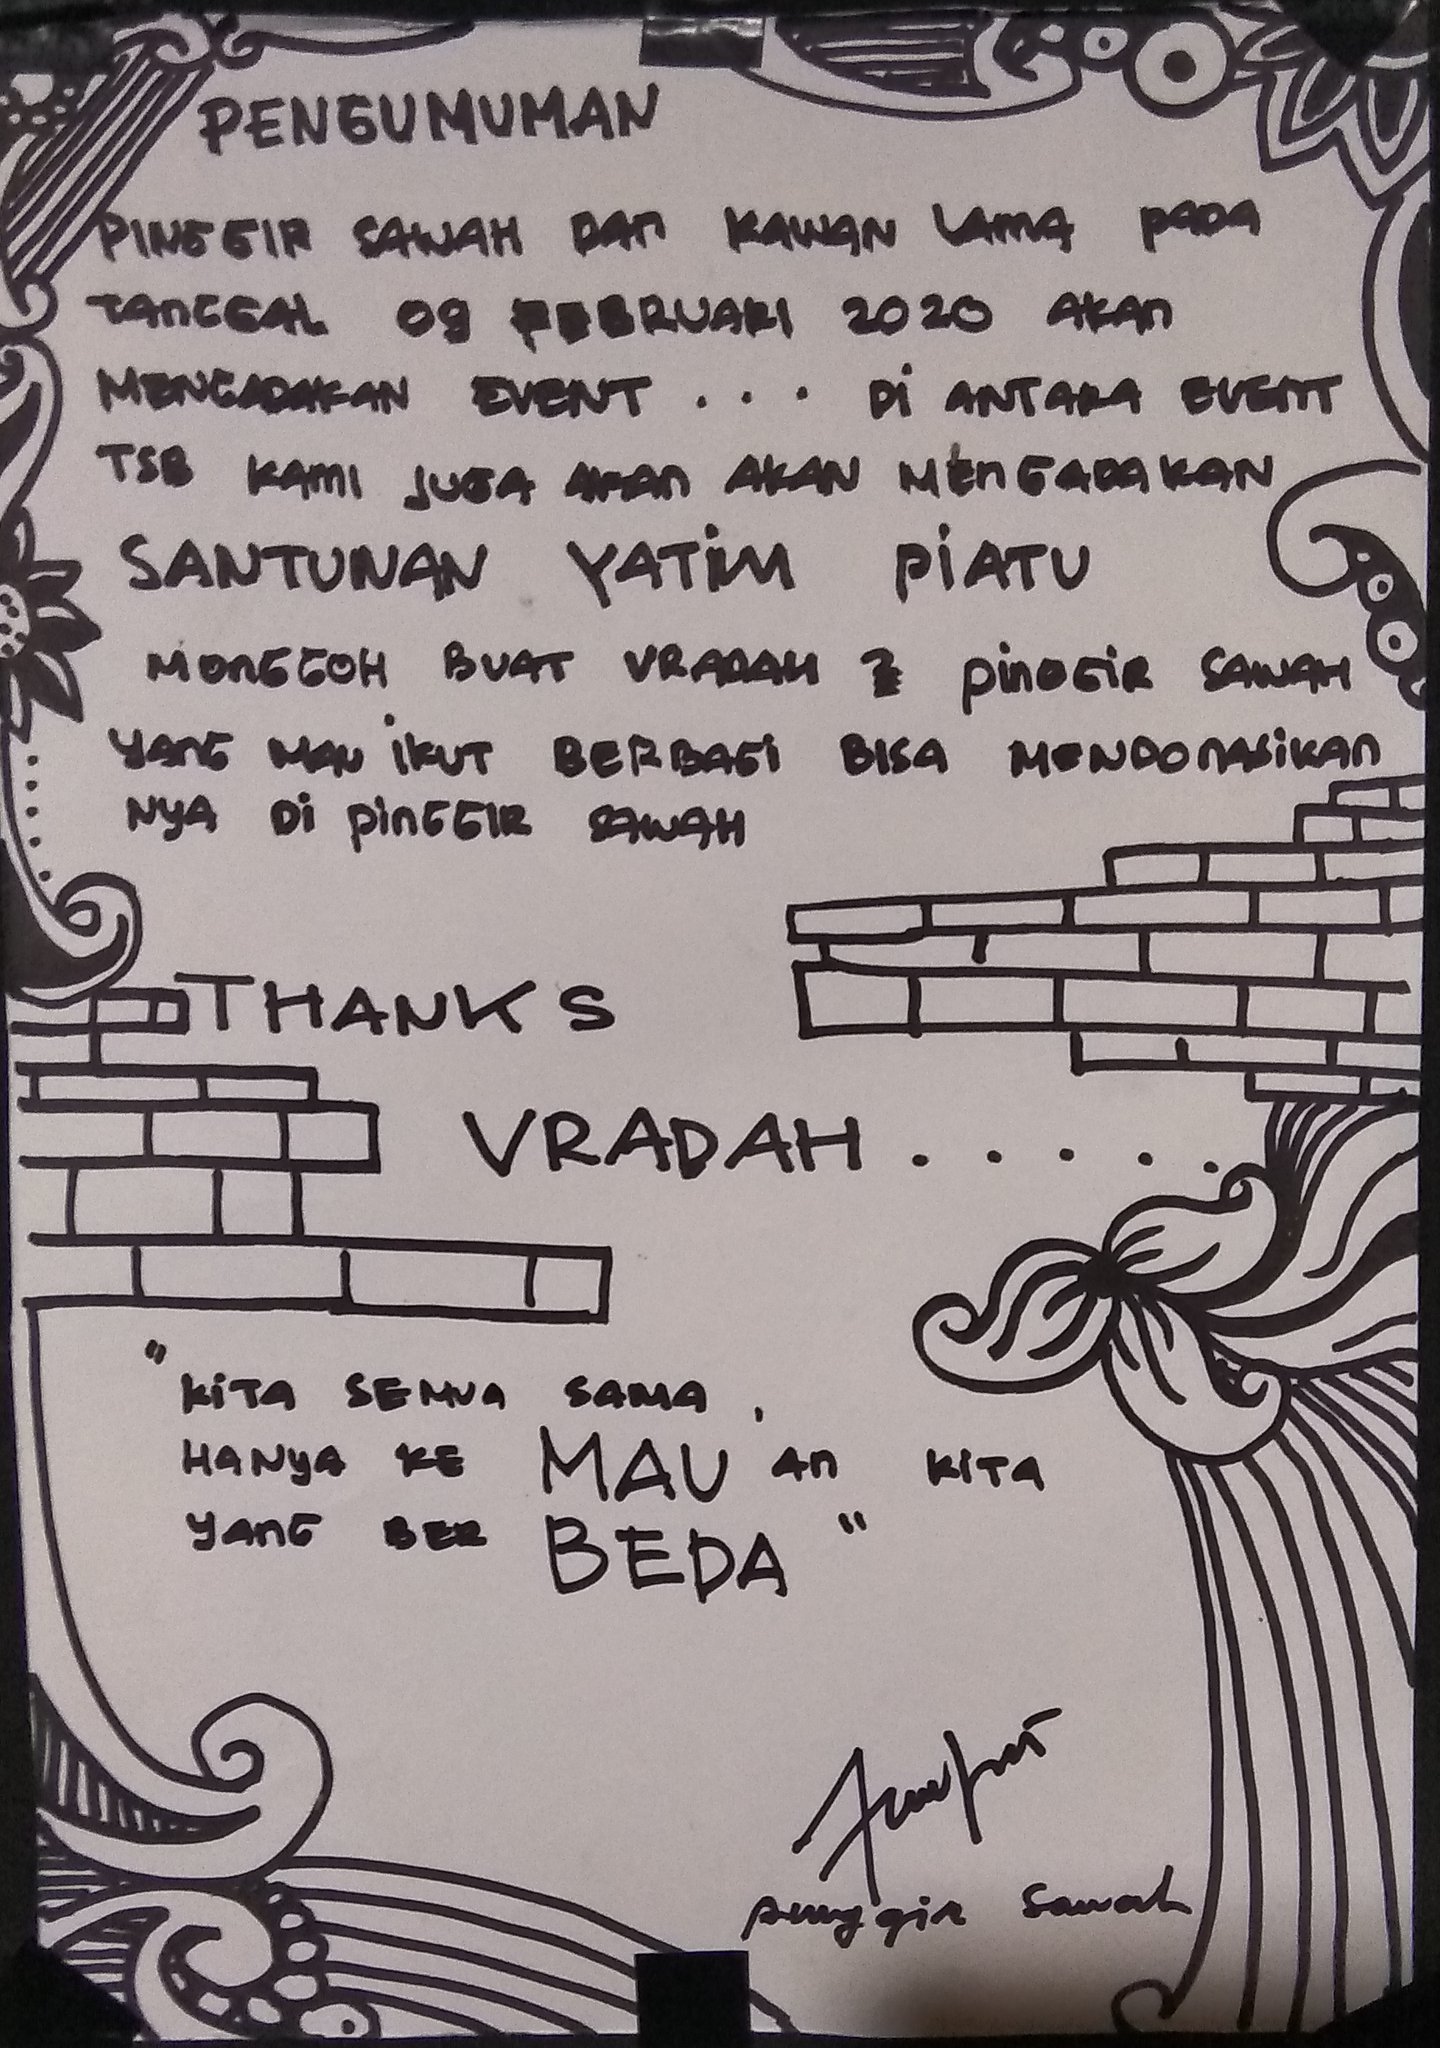 PENGUMUMAN
PINGGIR SAWAH DAN KAWAN LAMA PADA
TANGGAL 09 FEBRUARI 2020 AKAN
MENGADAKAN EVENT . . . Di ANTARA EVENT
TSB KAMI JUGA AKAN AKAN MENGADAKAN
SANTUNAN YATiM PiATU
MONGGOH BUAT VRADAH 2 PiNGGiR SAWAH
YANG MAU iKUT BERBAGi BISA MENDONASiKAN
NYA Di PiNGGIR SAWAH
THANKS
VRADAH . . . . .
"KiTA SEMUA SAMA ,
HANYA KE MAU AN KITA
YANG BER BEDA"
Pinggir Sawah